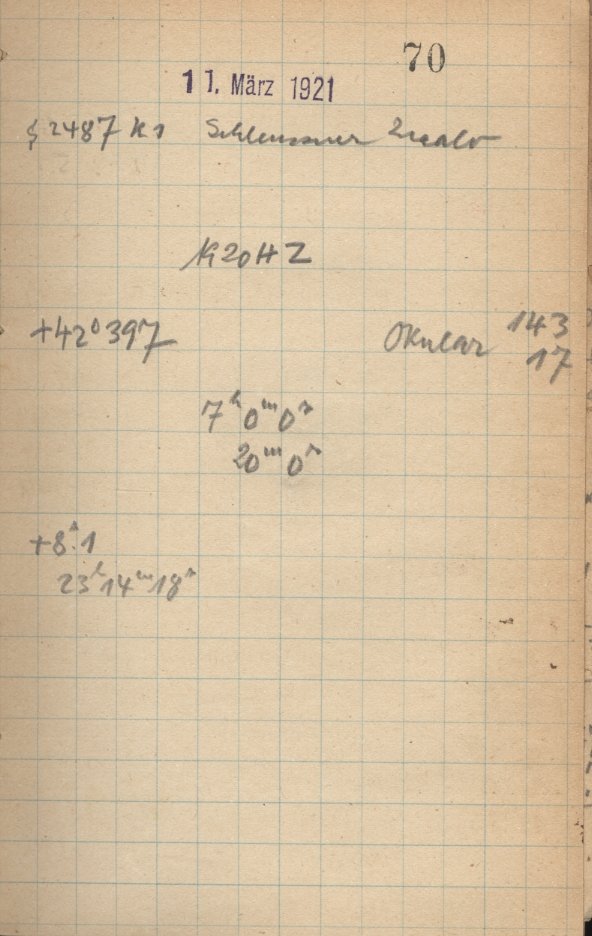 70
11. März 1921
2487 K1 Schleussner
K20HZ
+42° 397 Okular 143
17
7ʰ 0ᵐ 0ˢ
20ᵐ 0ˢ
+8ˢ.1
23ʰ 14ᵐ 18ˢ